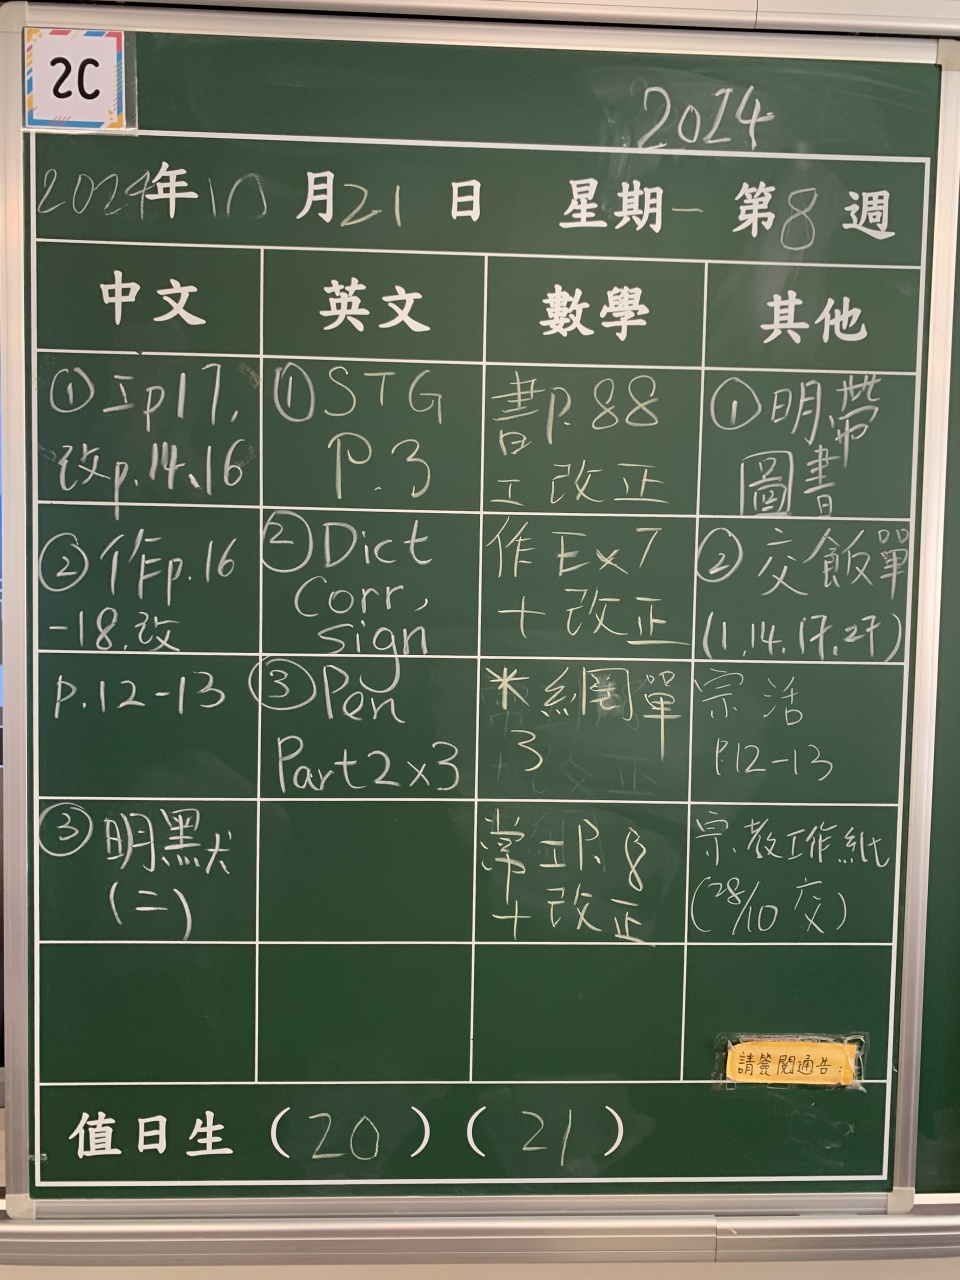 2C
2024
2024年10月21日 星期一 第8週
中文 英文 數學 其他
①工p17,
改p.14、16
①STG
P.3
書p.88
工改正
①明帶
圖書
②作p.16
-18.改
②Dict
Corr,
sign
作Ex7
+改正
②交飯單
(1,14,17,27)
P.12-13
③Pen
Part2x3
*網單
3
宗活
P.12-13
③明默
(二)
常工P.8
+改正
宗教工作紙
(28/10交)
請簽閱通告:
值日生(20)(21)